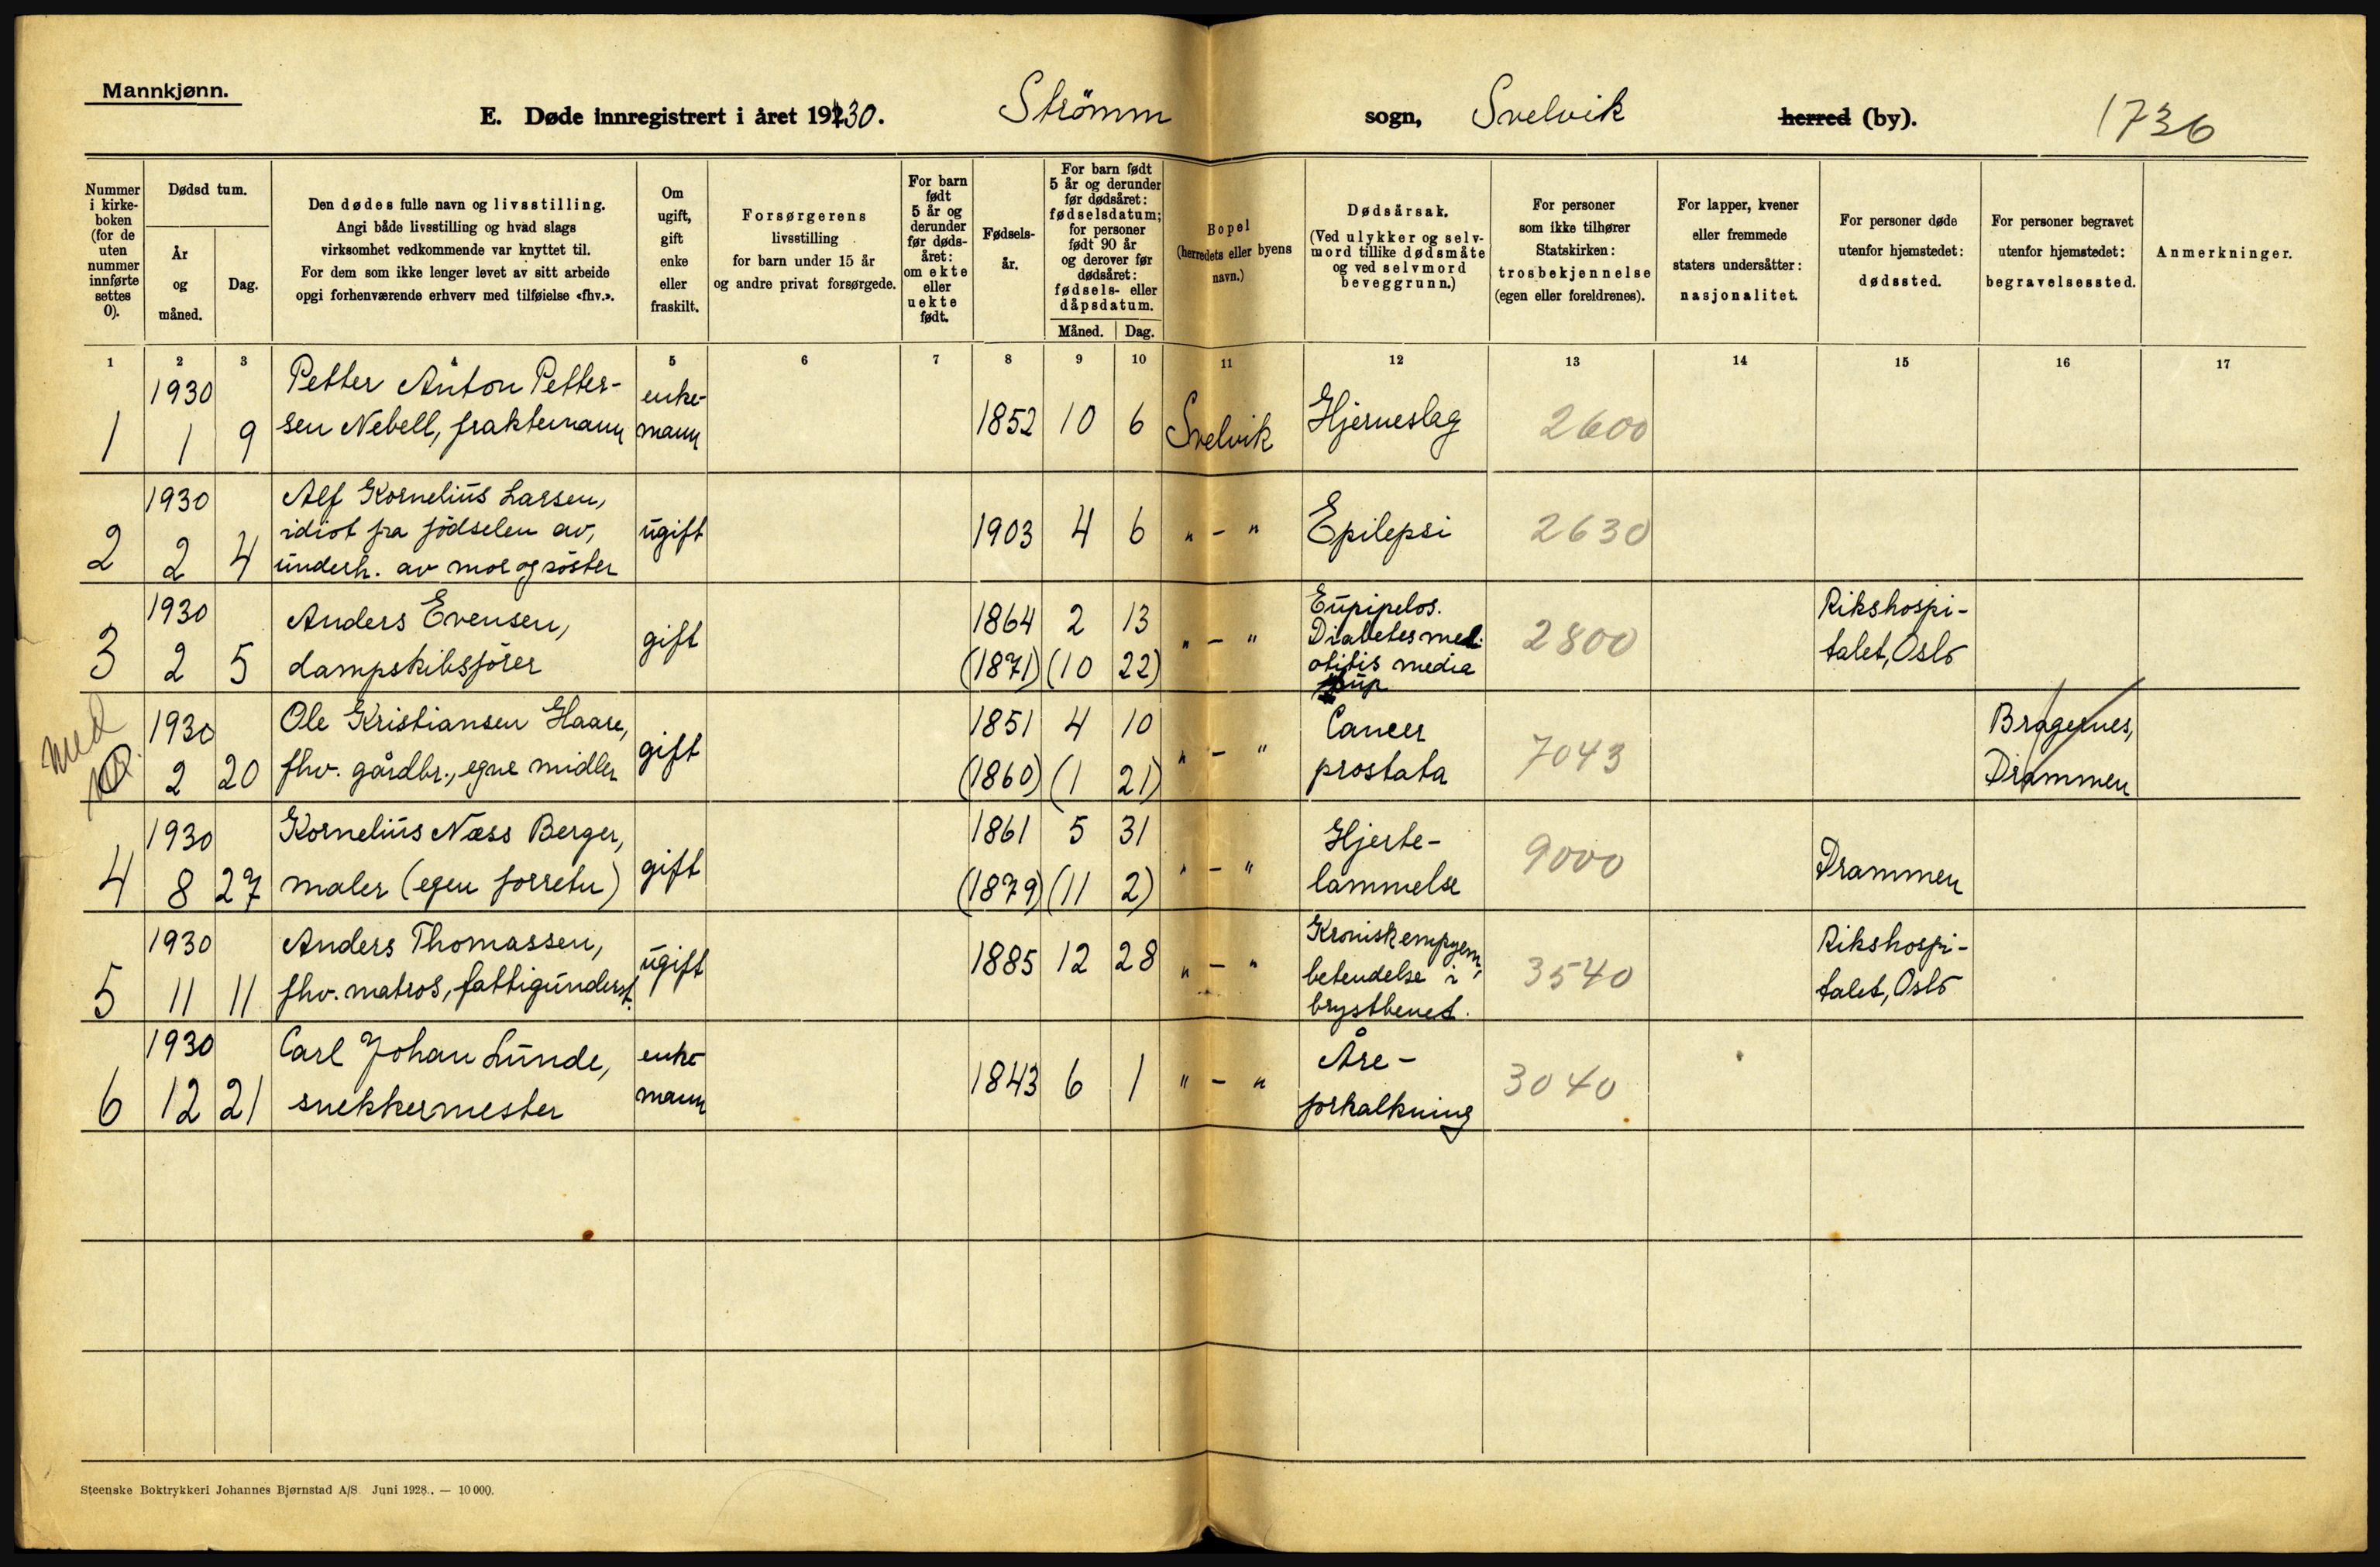 Mannkjønn.
E. Døde innregistrert i året 1930. Strömm sogn, Svelvik herred (by). 1736
Nummer i kirke- boken (for de uten nummer innførte settes 0).
Dødsd tum.
År og måned.
Dag.
Den dødes fulle navn og livsstilling.
Angi både livsstilling og hvad slags
virksomhet vedkommende var knyttet til.
For dem som ikke lenger levet av sitt arbeide
opgi forhenværende erhverv med tilføielse «fhv.».
Om ugift, gift enke eller fraskilt.
Forsørgerens
livsstilling
for barn under 15 år
og andre privat forsørgede.
For barn født 5 år og derunder før døds- året: om ekte eller uekte født.
Fødsels- år.
For barn født
5 år og derunder
før dødsåret:
fødselsdatum;
for personer
født 90 år
og derover før
dødsåret:
fødsels- eller
dåpsdatum.
Måned. Dag.
Bopel
(herredets eller byens
navn.)
Dødsårsak.
(Ved ulykker og selv-
mord tillike dødsmåte
og ved selvmord
beveggrunn.)
For personer
som ikke tilhører
Statskirken:
trosbekjennelse
(egen eller foreldrenes).
For lapper, kvener
eller fremmede
staters undersåtter:
nasjonalitet.
For personer døde
utenfor hjemstedet:
dødssted.
For personer begravet
utenfor hjemstedet:
begravelsessted.
Anmerkninger.
1 2 3 4 5 6 7 8 9 10 11 12 13 14 15 16 17
1930 Petter Anton Petter- enke-
1 1 9 sen Nebell, fraktemann mann 1852 10 6 Svelvik Hjerneslag 2600
1930 Alf Kornelius Larsen,
idiot fra födselen av, ugift 1903 4 6 " - " Epilepsi 2630
2 2 4 underh. av mor og söster
1930 Anders Evensen, gift 1864 2 13 " - " Diabetes mel. 2800 Rikshospi-
3 2 5 dampskibsförer (1871) (10 22) otitis media talet, Oslo
med
1930 Ole Kristiansen Haare, gift 1851 4 10 " - " Cancer 7043 Bragernes,
2 20 fhv. gårdbr., egne midler (1860) (1 21) prostata Drammen
1930 Kornelius Næss Berger, gift 1861 5 31 " - " Hjerte- 9000
4 8 27 maler (egen forretn) (1879) (11 2) lammelse Drammen
1930 Anders Thomassen, ugift 1885 12 28 " - " Kronisk empyem, 3540 Rikshospi-
5 11 11 fhv. matros, fattigunderst. betendelse i talet, Oslo
brystbenet.
1930 Carl Johan Lunde, enke- 1843 6 1 " - " Åre- 3040
6 12 21 snekkermester mann forkalkning
Steenske Boktrykkeri Johannes Bjørnstad A/S. Juni 1928. — 10 000.